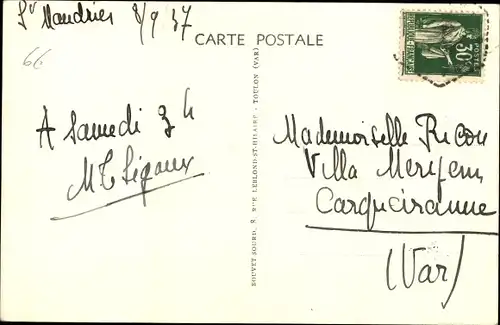 St Mandrier 8/9 37
66
CARTE POSTALE
À Samedi 3 h
Mademoiselle Ricou
Villa Meryem
Carqueiranne
(Var)
BOUVET SOURD, 8, RUE LEBLOND-ST-HILAIRE - TOULON (VAR)
30c
POSTES